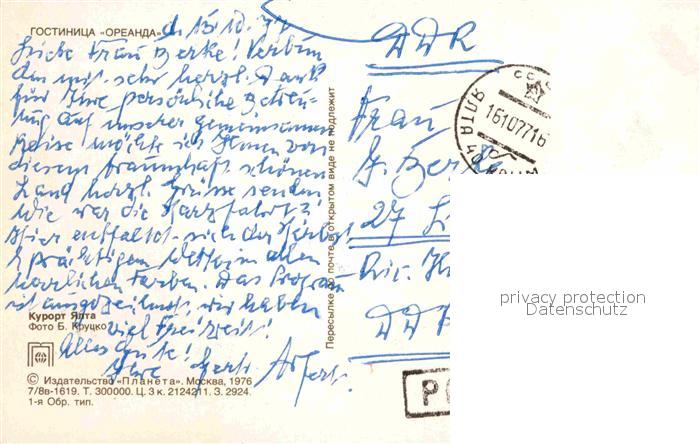 ГОСТИНИЦА «ОРЕАНДА»
d. 15.10.77
Liebe Frau Berke! Verbun
den mit sehr herzl. Dank
für Ihre persönliche Betreu-
ung auf unserer gemeinsamen
Reise möchte ich Ihnen von
diesem traumhaft schönen
Land herzl. Grüße senden
Wie war die Harzfahrt?
Hier entfaltet sich der Herbst
b. prächtigem Wetter in allen
herrlichen Farben. Das Program
ist ausgezeichnet, wir haben
viel Freizeit!
Alles Gute!
Ihre Gert
Курорт Ялта
Фото Б. Круцко
© Издательство «Планета». Москва, 1976
7/8в-1619. Т. 300000. Ц. 3 к. 2124211. З. 2924.
1-я Обр. тип.
Пересылке по почте в открытом виде не подлежит
DDR
Frau
Berke
27
DDR
СССР
ЯЛТА
16107716
privacy protection
Datenschutz